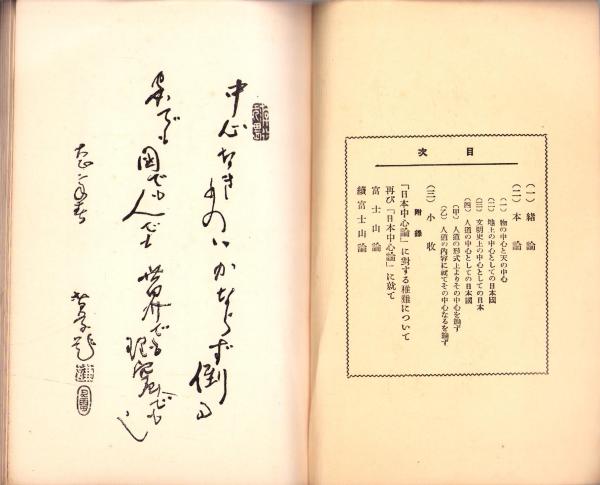 目次
(一) 緒論
(二) 本論
(一) 物の中心と天の中心
(二) 地上の中心としての日本國
(三) 文明史上の中心としての日本
(四) 人道の中心としての日本國
(甲) 人道の形式上よりその中心を論ず
(乙) 人道の内容に就てその中心なるを論ず
(三) 小收
附錄
「日本中心論」に對する種難について
再び「日本中心論」に就て
富士山論
續富士山論
中心なき
ものハかならず倒る
でも國でも人でも
世界でも
理窟でも
智学題